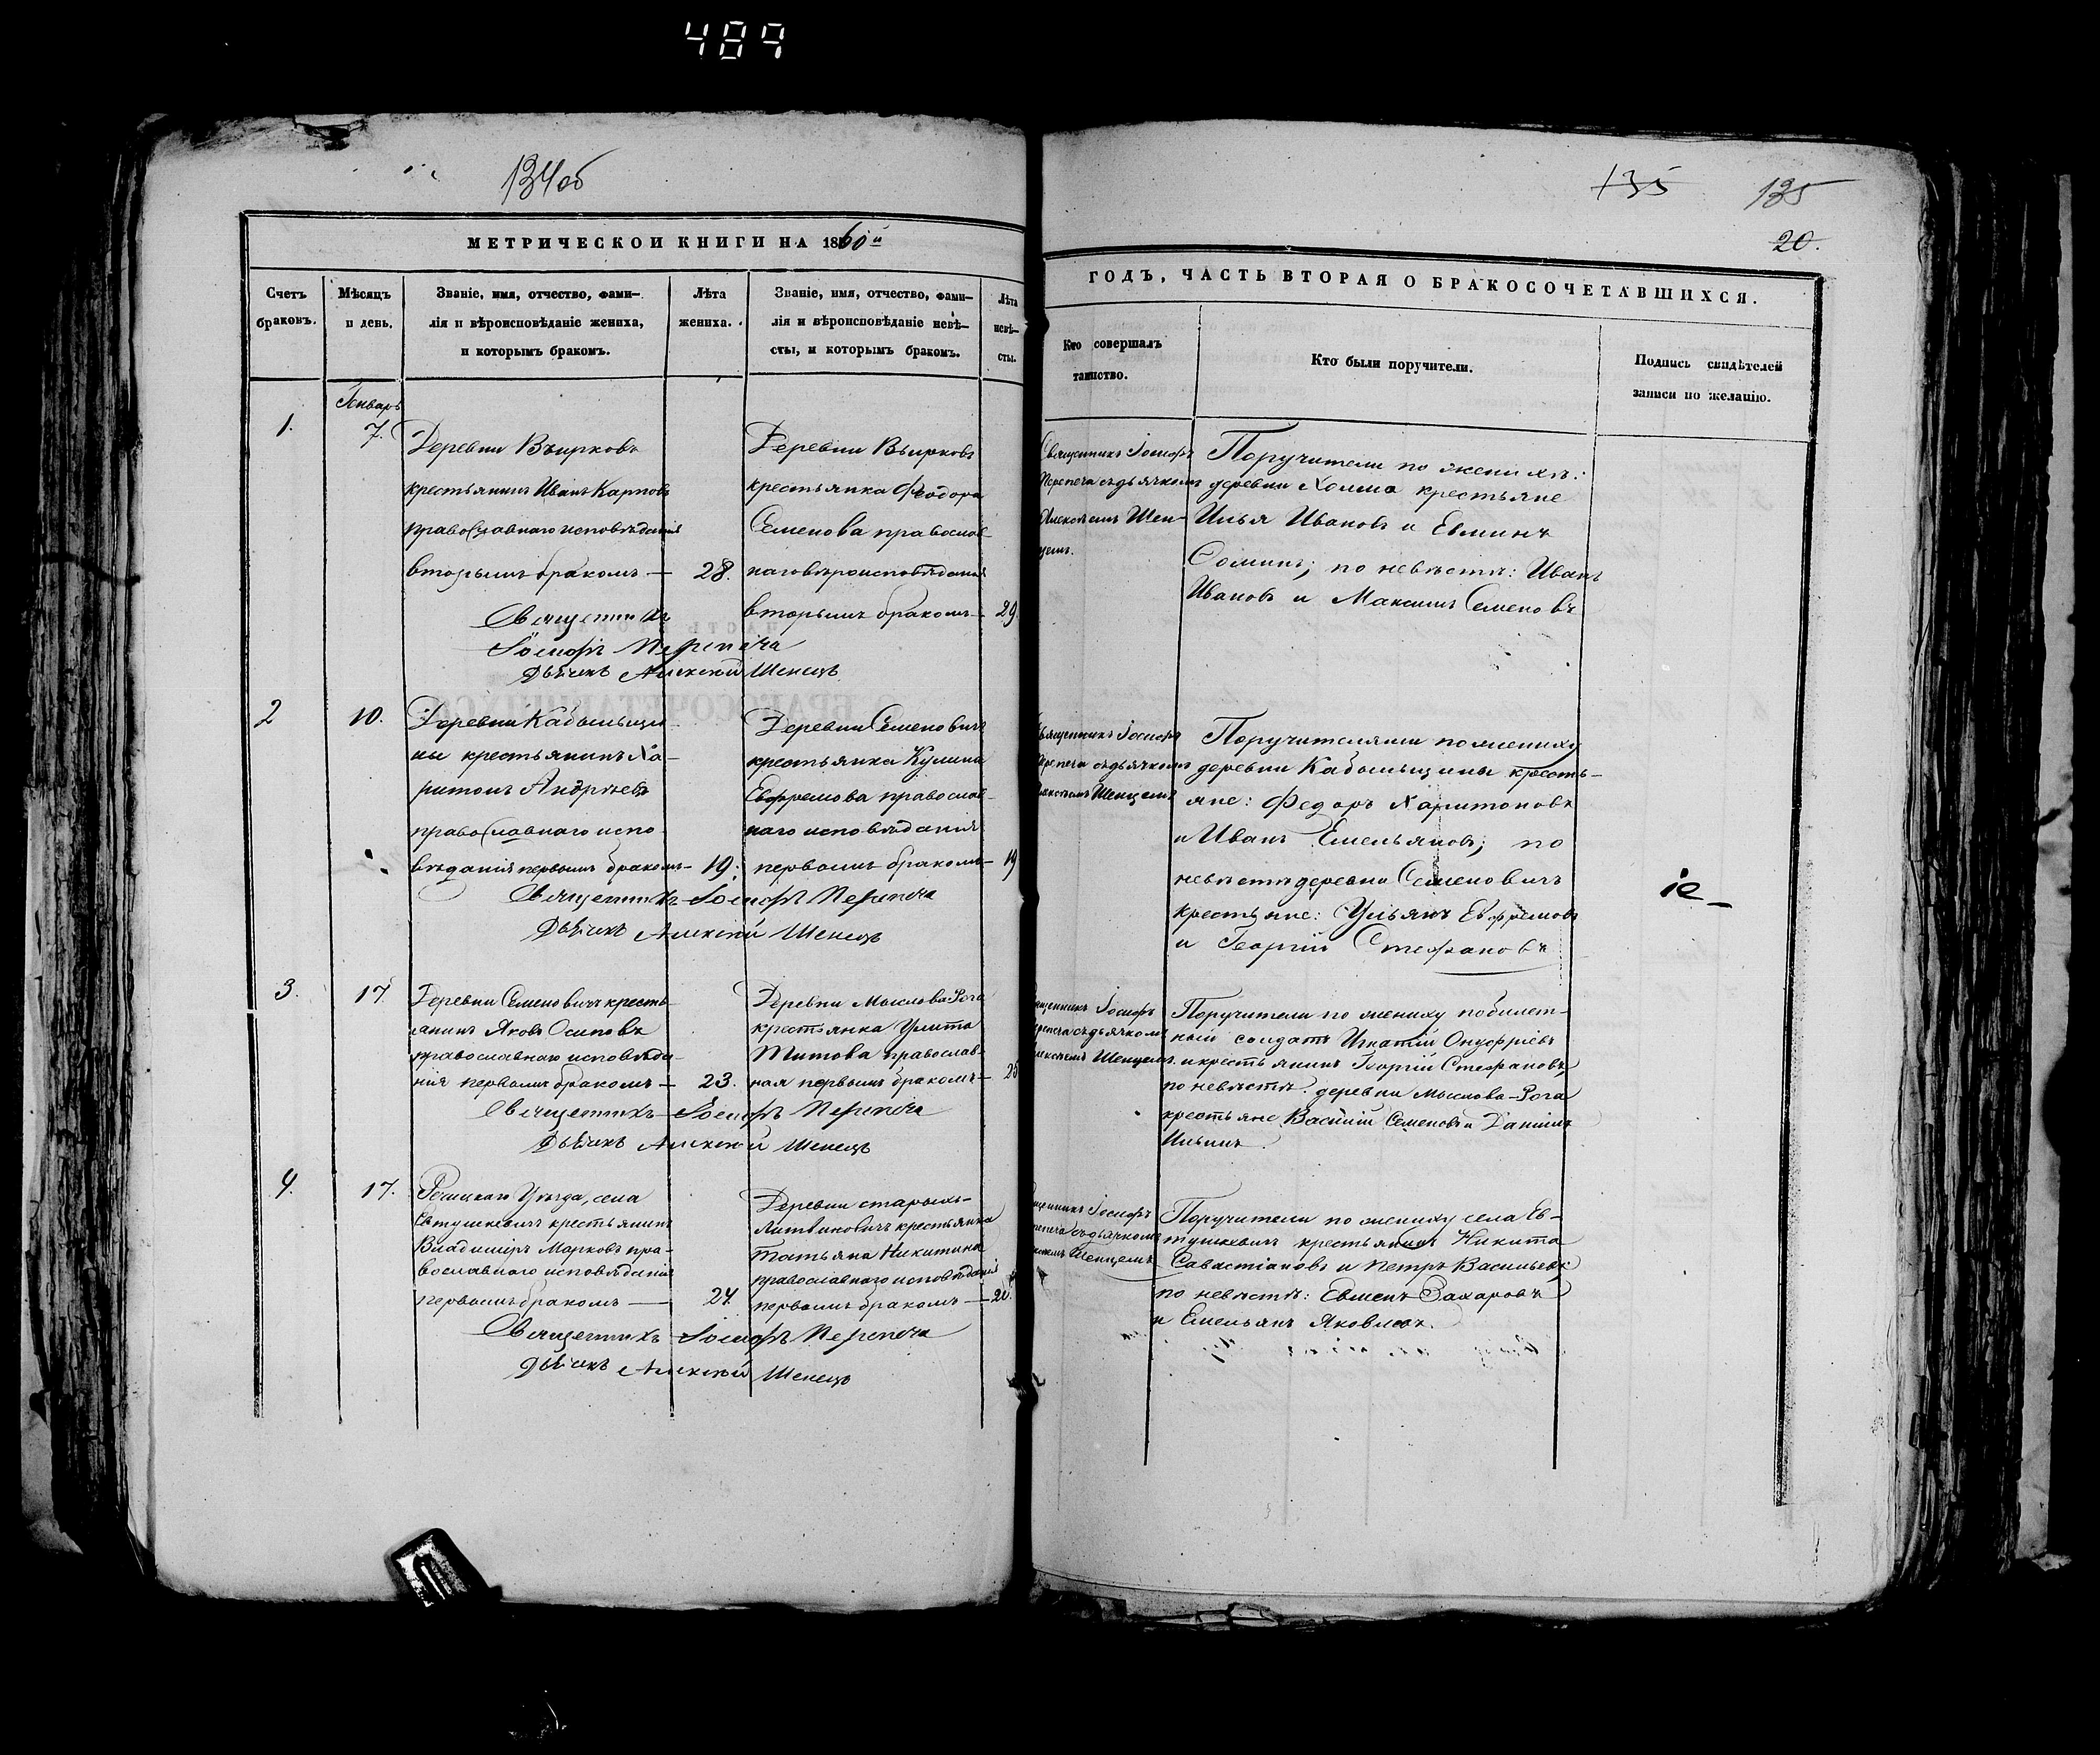 489
134об
МЕТРИЧЕСКОЙ КНИГИ НА 1860й
Счетъ браковъ.
Мѣсяцъ и день.
Званіе, имя, отчество, фами-
лія и вѣроисповѣданіе жениха,
и которымъ бракомъ.
Лѣта жениха.
Званіе, имя, отчество, фами-
лія и вѣроисповѣданіе невѣ-
сты, и которымъ бракомъ.
Лѣта невѣ-
сты.
Январь
1.
7.
Деревни Въирковъ
крестьянинъ Иванъ Карповъ
православнаго исповѣданія
вторымъ бракомъ —
28.
Деревни Въирковъ
крестьянка Феодора
Семенова православ-
наго вѣроисповѣданія
вторымъ бракомъ —
29
Священникъ
Іосифъ Перепеча
Дьячекъ Алексѣй Шенецъ
2
10.
Деревни Кабыльщи
ны крестьянинъ Ха-
ритонъ Андреевъ
православнаго испо-
вѣданія первымъ бракомъ —
19.
Деревни Семеновичъ
крестьянка Кулина
Евфремова православ-
наго исповѣданія
первымъ бракомъ —
19
Священникъ Іосифъ Перепеча
Дьячекъ Алексѣй Шенецъ
3.
17
Деревни Семеновичъ кресть-
янинъ Яковъ Осиповъ
православнаго исповѣда-
нія первымъ бракомъ —
23.
Деревни Мыслова-Рога
крестьянка Улита
Титова православ-
ная первымъ бракомъ —
25
Священникъ Іосифъ Перепеча
Дьячекъ Алексѣй Шенецъ
4.
17.
Рѣчицкаго Уѣзда, села
Евтушкевичъ крестьянинъ
Владиміръ Марковъ пра-
вославнаго исповѣданія
первымъ бракомъ —
24.
Деревни старыхъ-
Литвиновичъ крестьянка
Татьяна Никитина
православнаго исповѣданія
первымъ бракомъ —
20.
Священникъ Іосифъ Перепеча
Дьячекъ Алексѣй Шенецъ
135
135
20.
ГОДЪ, ЧАСТЬ ВТОРАЯ О БРАКОСОЧЕТАВШИХСЯ.
Кто совершалъ
таинство.
Кто были поручители.
Подпись свидѣтелей
записи по желанію.
Священникъ Іосифъ
Перепеча съ дьячкомъ
Алексѣемъ Шен-
цемъ.
Поручители по женихѣ:
деревни Холма крестьяне
Илья Ивановъ и Евминъ
Соминъ; по невѣстѣ: Иванъ
Ивановъ и Максимъ Семеновъ
Священникъ Іосифъ
Перепеча съ дьячкомъ
Алексѣемъ Шенцемъ
Поручителями по жениху
деревни Кабыльщины кресть-
яне: Федоръ Харитоновъ
и Иванъ Емельяновъ; по
невѣстѣ деревни Семеновичъ
крестьяне: Ульянъ Евфремовъ
и Георгій Стефановъ
іе_
Священникъ Іосифъ
Перепеча съ дьячкомъ
Алексѣемъ Шенцемъ.
Поручители по жениху побилет-
ный солдатъ Игнатій Онуфріевъ
и крестьянинъ Георгій Стефановъ,
по невѣстѣ деревни Мыслова-Рога
крестьяне Василій Семеновъ и Даніилъ
Ильинъ.
Священникъ Іосифъ
Перепеча съ дьячкомъ
Алексѣемъ Шенцемъ
Поручители по жениху села Ев-
тушкевичъ крестьянинъ Никита
Савастіановъ и Петръ Васильевъ,
по невѣстѣ: Евменъ Захаровъ
и Емельянъ Яковлевъ.